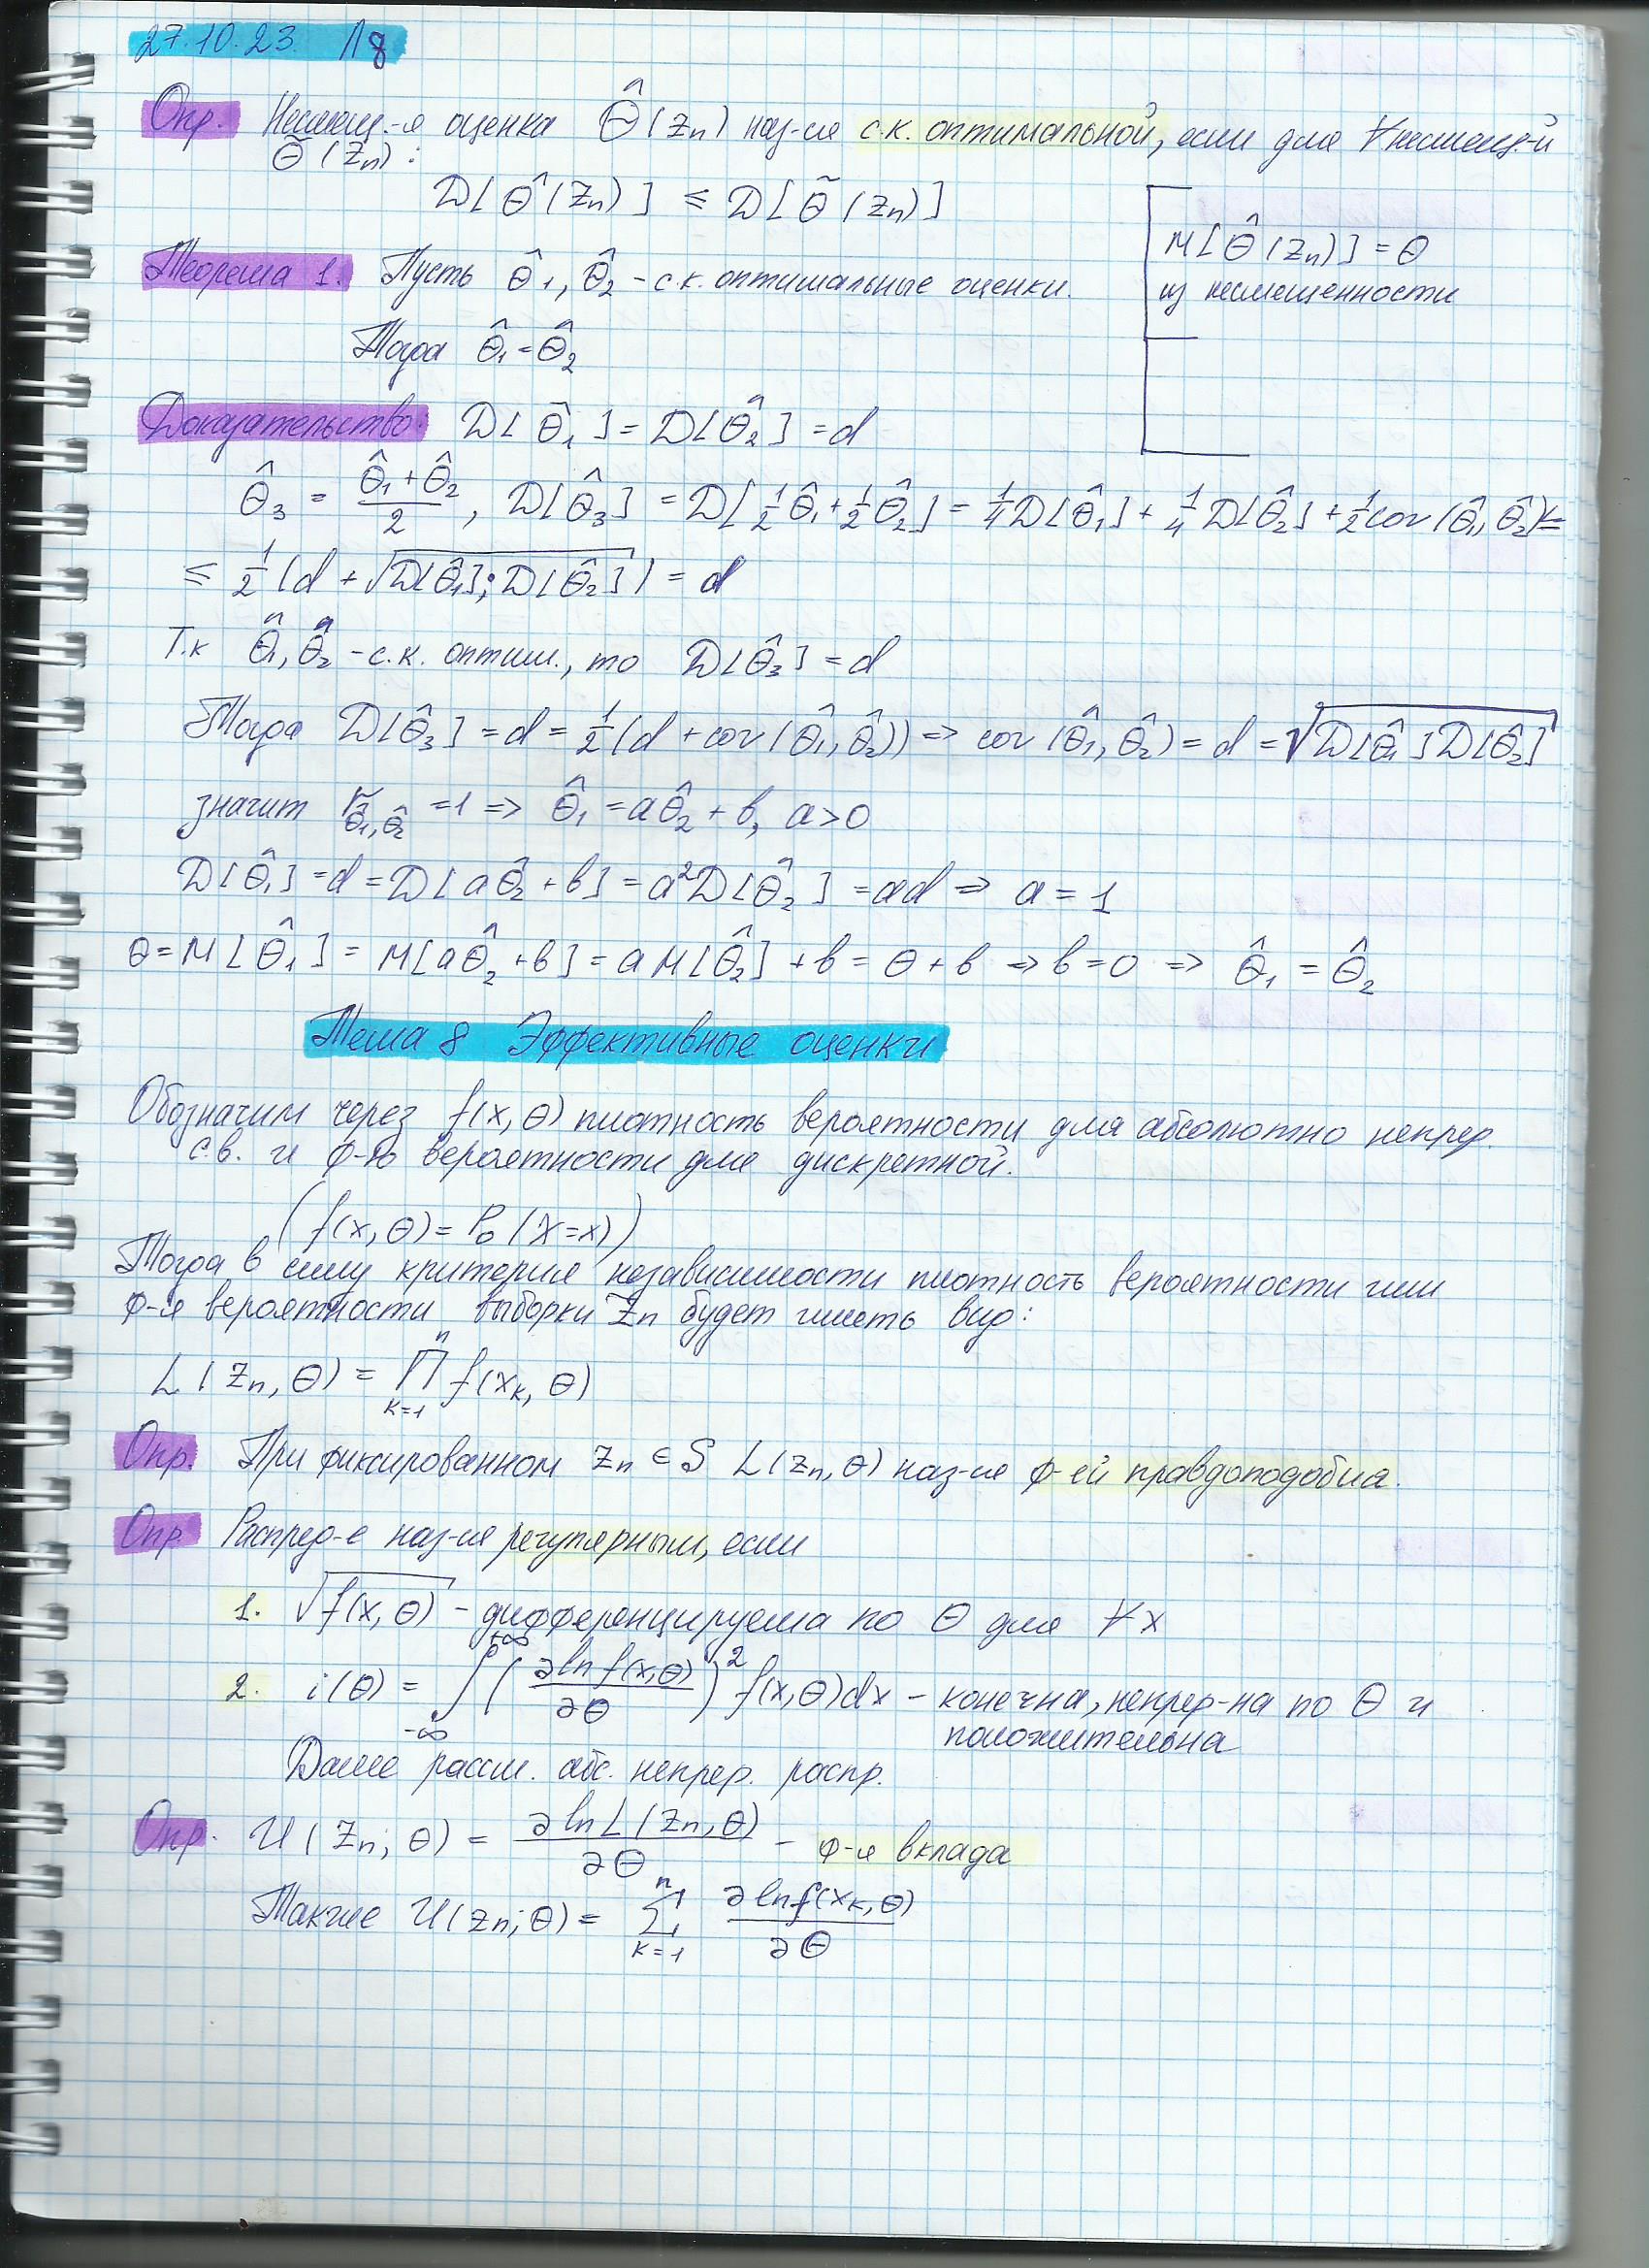 27.10.23. Л8
Опр. Несмещ.-я оценка Θ̂(Zn) наз-ся с.к. оптимальной, если для ∀ несмещ-й
Θ̃(Zn):
D[Θ̂(Zn)] ≤ D[Θ̃(Zn)]
M[Θ̂(Zn)] = Θ
из несмещенности
Теорема 1. Пусть Θ̂1, Θ̂2 - с.к. оптимальные оценки.
Тогда Θ̂1 = Θ̂2
Доказательство: D[Θ̂1] = D[Θ̂2] = d
Θ̂3 = (Θ̂1 + Θ̂2)/2, D[Θ̂3] = D[1/2 Θ̂1 + 1/2 Θ̂2] = 1/4 D[Θ̂1] + 1/4 D[Θ̂2] + 1/2 cov(Θ̂1, Θ̂2) ≤
≤ 1/2 (d + √(D[Θ̂1]·D[Θ̂2])) = d
Т.к Θ̂1, Θ̂2 - с.к. оптим., то D[Θ̂3] = d
Тогда D[Θ̂3] = d = 1/2 (d + cov(Θ̂1, Θ̂2)) => cov(Θ̂1, Θ̂2) = d = √(D[Θ̂1]D[Θ̂2])
значит r Θ̂1,Θ̂2 = 1 => Θ̂1 = aΘ̂2 + b, a>0
D[Θ̂1] = d = D[aΘ̂2 + b] = a²D[Θ̂2] = ad => a = 1
Θ = M[Θ̂1] = M[aΘ̂2 + b] = aM[Θ̂2] + b = Θ + b => b = 0 => Θ̂1 = Θ̂2
Тема 8 Эффективные оценки
Обозначим через f(x, Θ) плотность вероятности для абсолютно непрер.
с.в. и ф-ю вероятности для дискретной.
(f(x, Θ) = PΘ(X = x))
Тогда в силу критерия независимости плотность вероятности или
ф-я вероятности выборки Zn будет иметь вид:
L(Zn, Θ) = ∏ₖ₌₁ⁿ f(xk, Θ)
Опр. При фиксированном Zn ∈ S L(Zn, Θ) наз-ся ф-ей правдоподобия.
Опр. Распред-е наз-ся регулярным, если
1. √f(x, Θ) - дифференцируема по Θ для ∀x
2. i(Θ) = ∫₋∞⁺∞ (∂ln f(x,Θ)/∂Θ)² f(x,Θ)dx - конечна, непрер-на по Θ и
положительна
Далее рассм. абс. непрер. распр.
Опр. U(Zn; Θ) = ∂ln L(Zn, Θ)/∂Θ - ф-я вклада
Также U(Zn; Θ) = ∑ₖ₌₁ⁿ ∂ln f(xk, Θ)/∂Θ